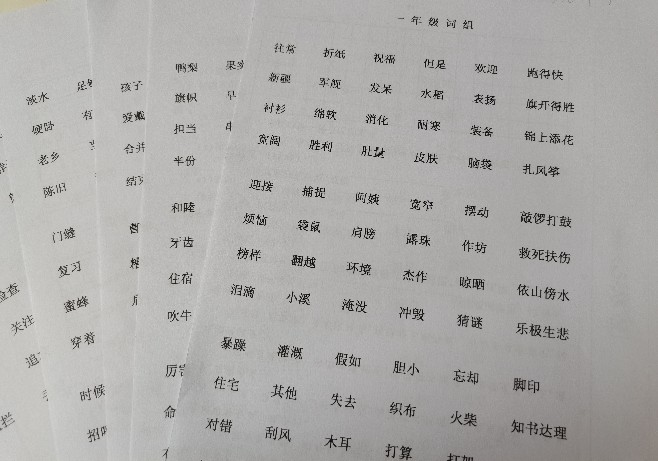 一年级词组
往常 折纸 祝福 但是 欢迎 跑得快
新疆 军舰 发呆 水稻 表扬 旗开得胜
衬衫 绵软 消化 耐寒 装备 锦上添花
宽阔 胜利 肚量 皮肤 脑袋 扎风筝
迎接 捕捉 阿姨 宽窄 摆动 敲锣打鼓
烦恼 袋鼠 肩膀 露珠 作坊 救死扶伤
榜样 翻越 环境 杰作 晾晒 依山傍水
泪滴 小溪 淹没 冲毁 猜谜 乐极生悲
暴躁 灌溉 假如 胆小 忘却 脚印
住宅 其他 失去 织布 火柴 知书达理
对错 刮风 木耳 打算 打架
鸭梨 果实
旗帜 早
担当
半份
和睦
牙齿
住宿
吹牛
厉害
命
孩子
爱戴
合并
结实
淡水 足够
硬卧 有
老乡
陈旧
门缝
复习
蜜蜂
穿着
时候
招呼
检查
关注
追
栏